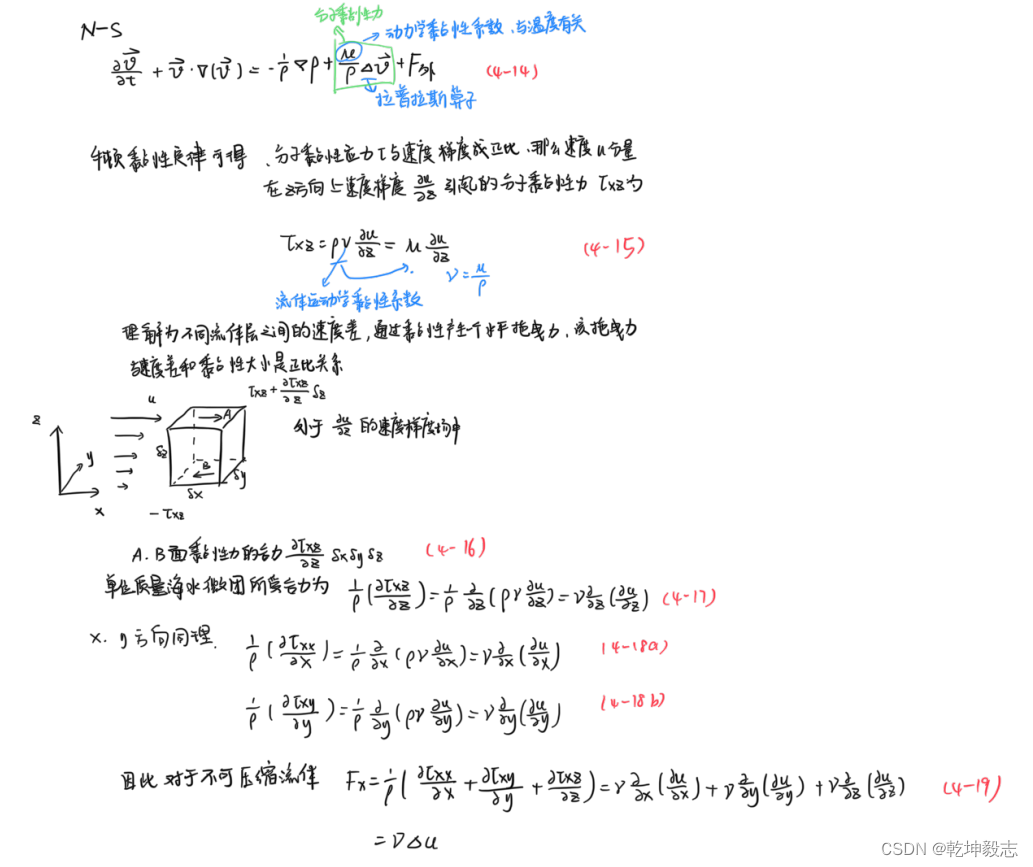 分子黏性力
N-S
动力学黏性系数、与温度有关
∂v⃗/∂t + v⃗·∇(v⃗) = -1/ρ ∇p + μ/ρ Δv⃗ + F外 (4-14)
拉普拉斯算子
牛顿黏性定律可得、分子黏性应力τ与速度梯度成正比、那么速度u分量
在z方向上速度梯度 ∂u/∂z 引起的分子黏性力 τxz为
τxz = ρν ∂u/∂z = μ ∂u/∂z (4-15)
ν = μ/ρ
流体运动学黏性系数
理解为不同流体层之间的速度差,通过黏性产生个水平拖曳力,该拖曳力
与速度差和黏性大小是正比关系
τxz + ∂τxz/∂z δz
u
z
A
处于 ∂u/∂z 的速度梯度场中
y
δz
B
δy
δx
x
-τxz
A.B面黏性力的合力 ∂τxz/∂z δxδyδz (4-16)
单位质量海水微团所受合力为 1/ρ(∂τxz/∂z) = 1/ρ ∂/∂z(ρν ∂u/∂z) = ν ∂/∂z(∂u/∂z) (4-17)
x、y方向同理. 1/ρ(∂τxx/∂x) = 1/ρ ∂/∂x(ρν ∂u/∂x) = ν ∂/∂x(∂u/∂x) (4-18a)
1/ρ(∂τxy/∂y) = 1/ρ ∂/∂y(ρν ∂u/∂y) = ν ∂/∂y(∂u/∂y) (4-18b)
因此对于不可压缩流体 Fx = 1/ρ(∂τxx/∂x + ∂τxy/∂y + ∂τxz/∂z) = ν ∂/∂x(∂u/∂x) + ν ∂/∂y(∂u/∂y) + ν ∂/∂z(∂u/∂z) (4-19)
= νΔu
CSDN @乾坤毅志